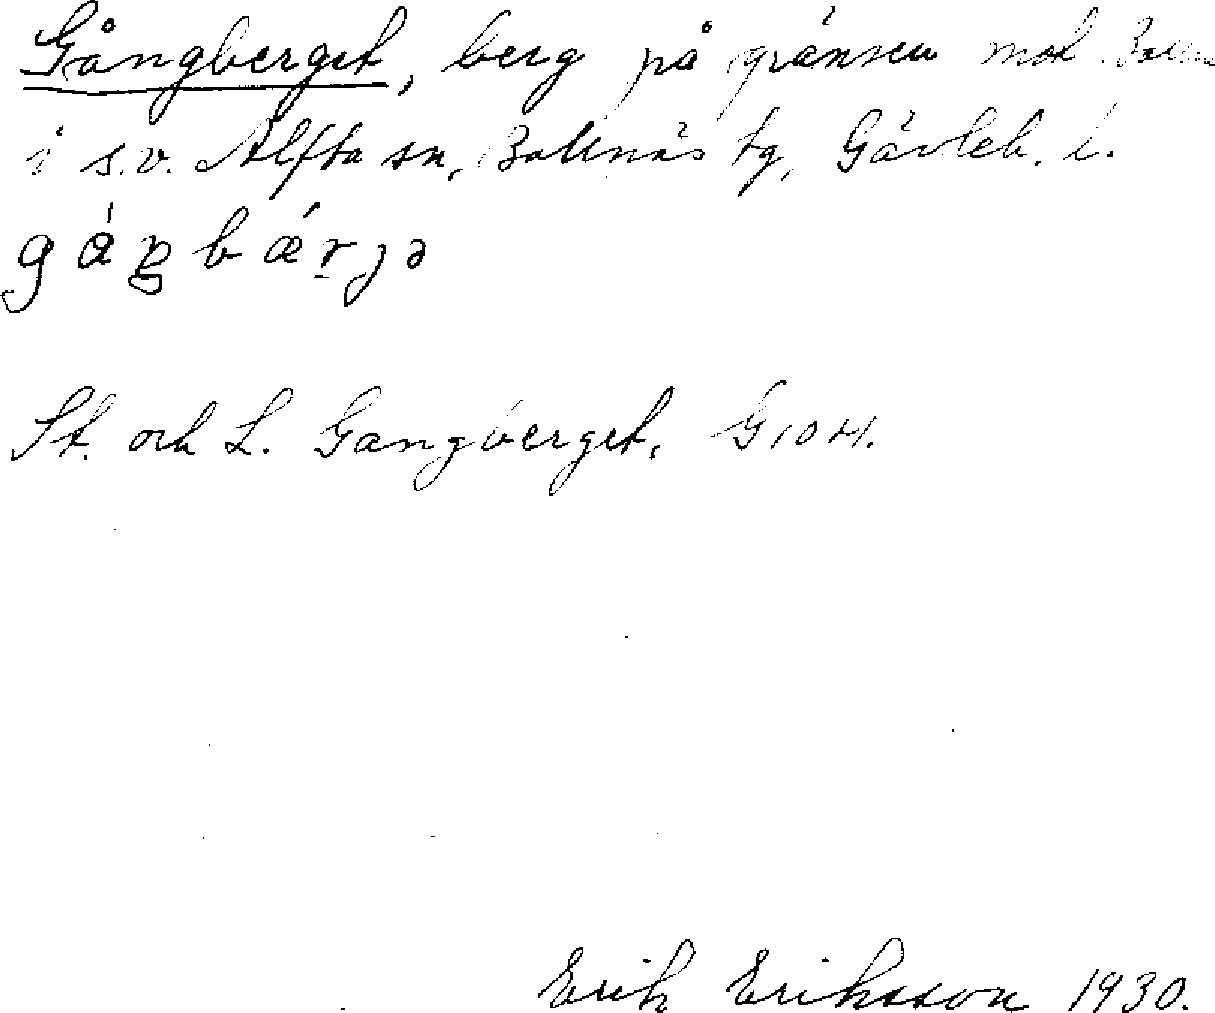 Gångberget, berg på gränsen mot Bolln
i s.v. Alfta sn, Bollnäs tg, Gävleb. l.
St. och L. Gangberget. G 10 H.
Erik Eriksson 1930.